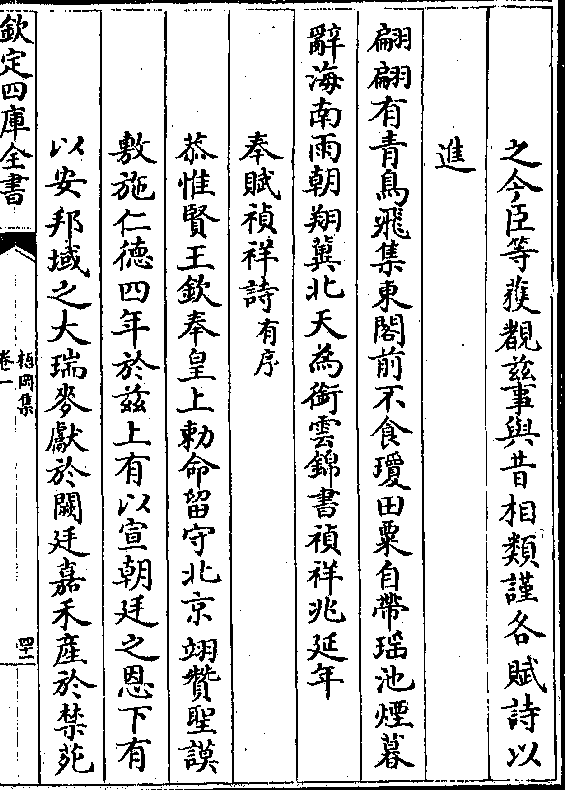 之今臣等獲覩兹事與昔相類謹各賦詩以
進
翩翩有青鳥飛集東閣前不食瓊田粟自帶瑶池煙暮
辭海南雨朝翔冀北天為銜雲錦書禎祥兆延年
奉賦禎祥詩有序
恭惟賢王欽奉皇上勅命留守北京翊贊聖謨
敷施仁德四年於兹上有以宣朝廷之恩下有
以安邦域之大瑞麥獻於闕廷嘉禾産於禁苑
欽定四庫全書
集
卷一